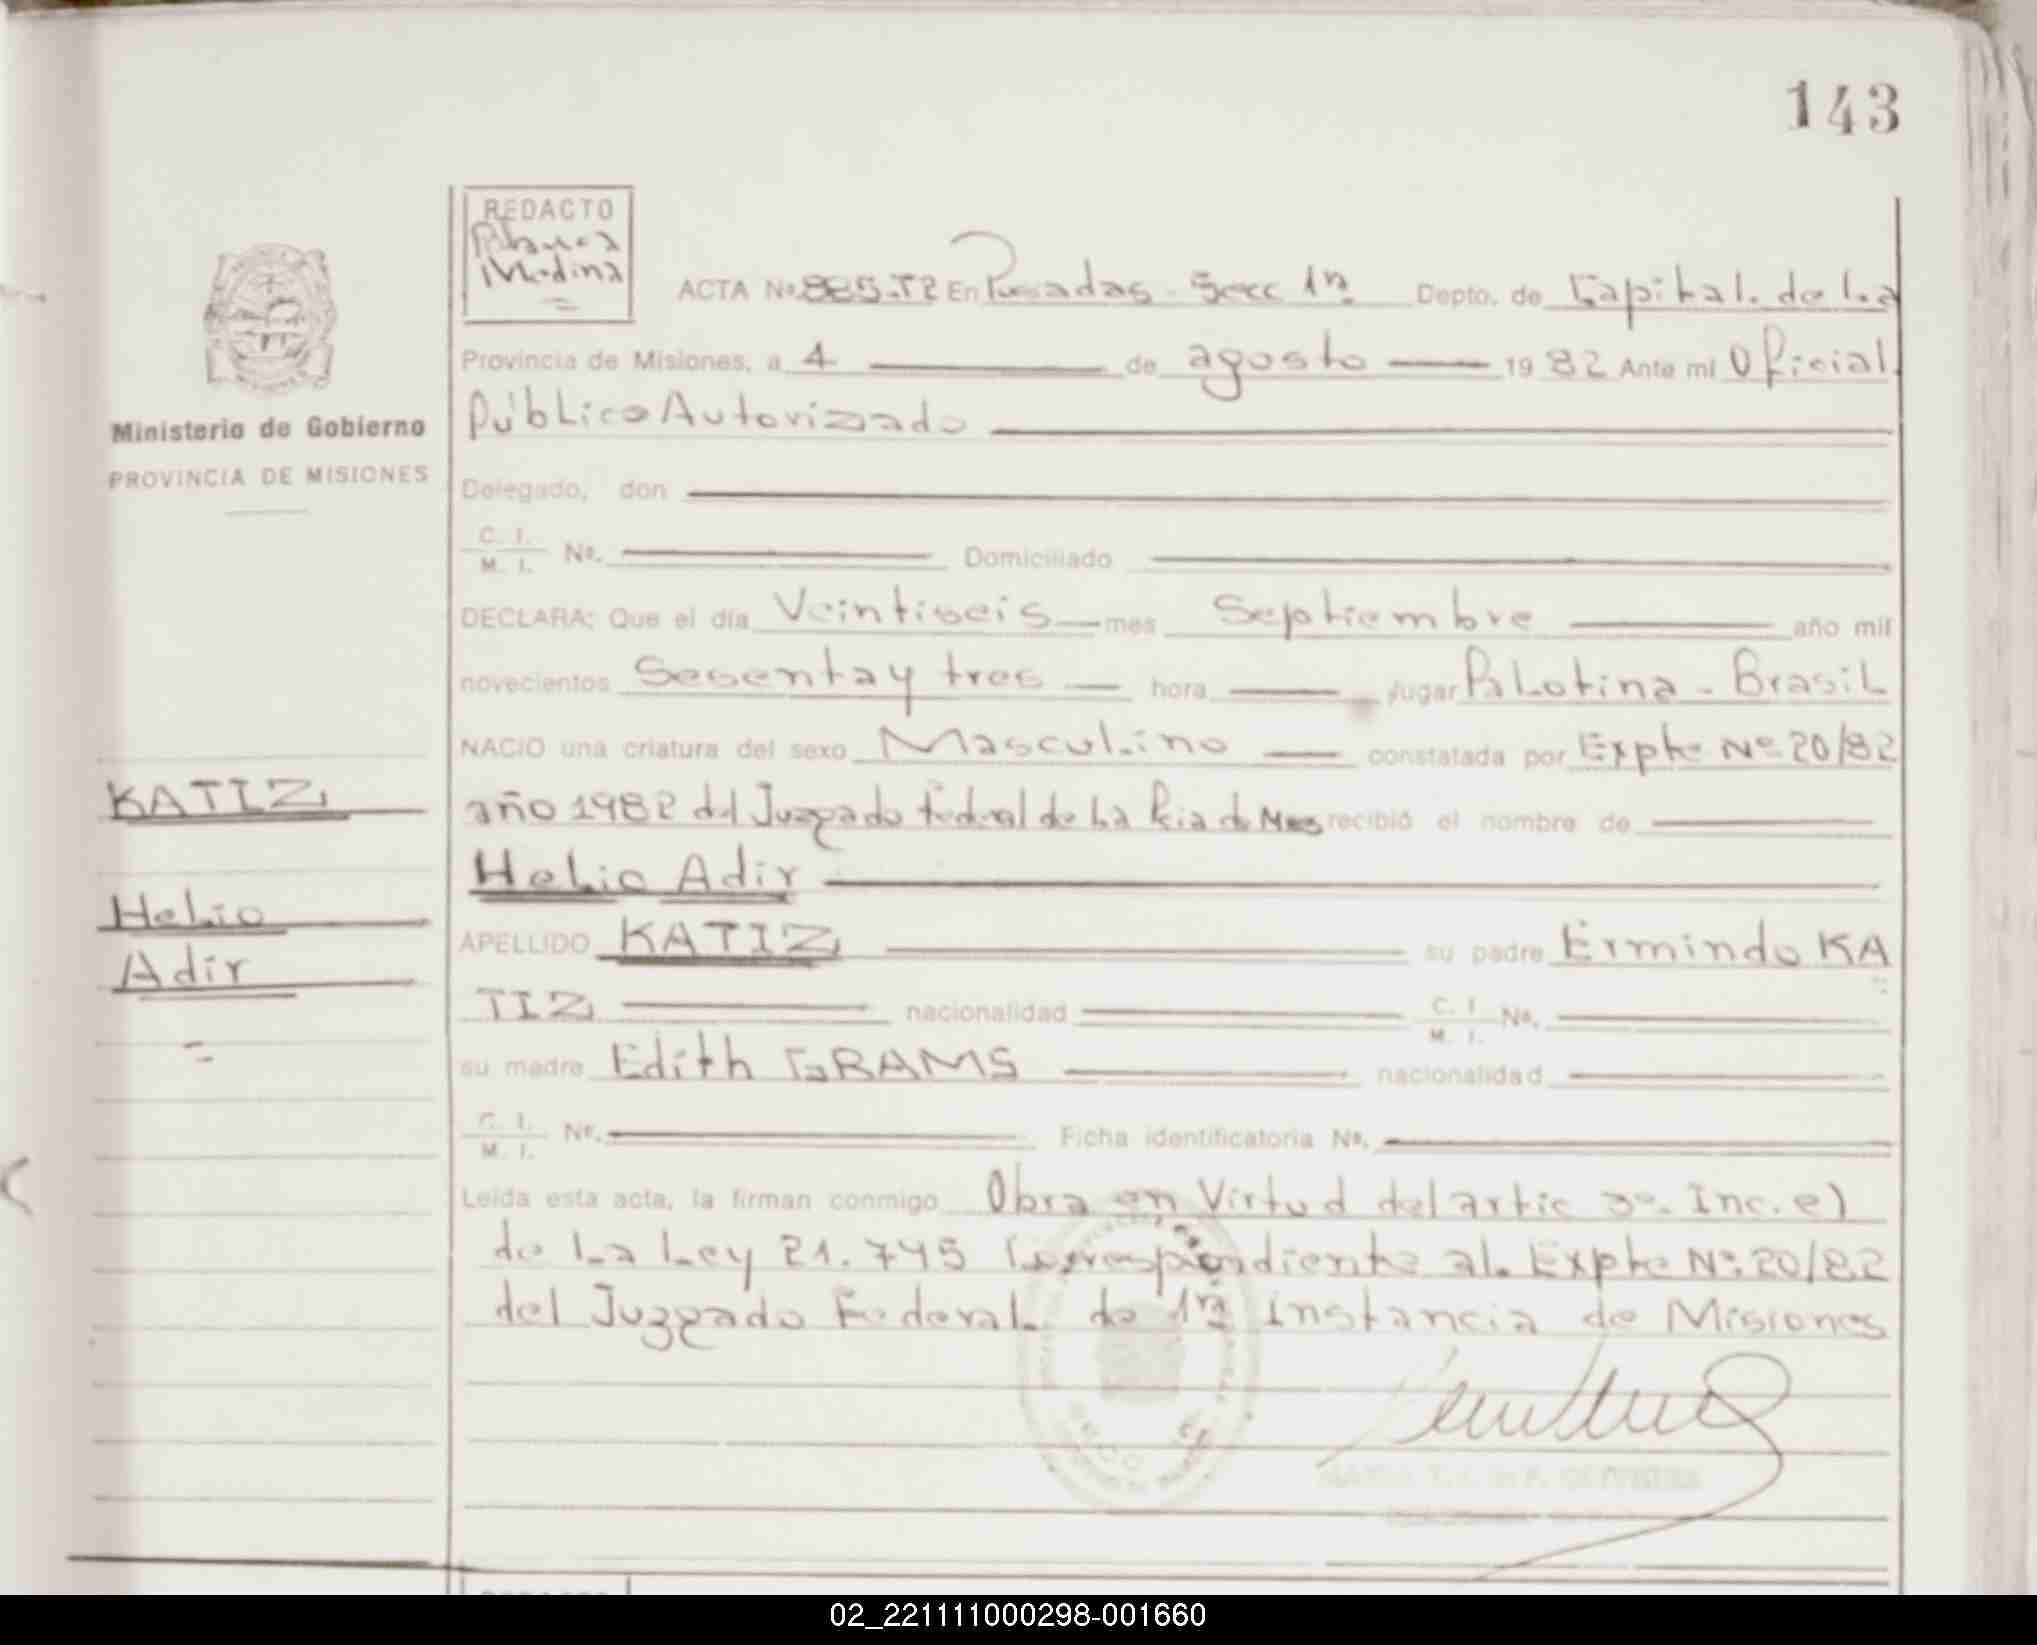 143
REDACTO
Blanca
Medina
ACTA No. 885.T2 En Posadas - Secc 1ra Depto. de Capital. de La
Provincia de Misiones, a 4 de agosto 1982 Ante mi Oficial
Público Autorizado
Ministerio de Gobierno
PROVINCIA DE MISIONES
Delegado, don
C. I.
M. I. No. Domiciliado
DECLARA: Que el día Veintiseis mes Septiembre año mil
novecientos Sesenta y tres hora lugar Palotina - Brasil
NACIO una criatura del sexo Masculino constatada por Expte Nº 20/82
KATIZ
año 1982 del Juzgado Federal de La Pcia de Mnes recibió el nombre de
Helio Adir
Helio
Adir
APELLIDO KATIZ su padre Ermindo KA
TIZ nacionalidad C. I.
M. I. No.
su madre Edith GRAMS nacionalidad
C. I.
M. I. No. Ficha identificatoria No.
Leída esta acta, la firman conmigo Obra en Virtud del artic 3º. Inc. e)
de La Ley 21.745 Correspondiente al Expte Nº 20/82
del Juzgado Federal de 1ra instancia de Misiones
02_221111000298-001660